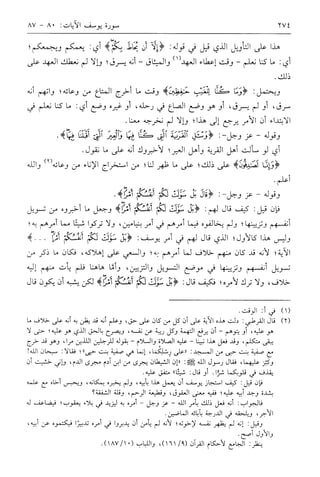 ٢٧٤
سورة يوسف الآيات: ٨٠ - ٨٧
هذا على التأويل الذي قيل في قوله: ﴿إِلَّا أَن يُحَاطَ بِكُمْ﴾ أي: يعمكم ويجمعكم؛
أي: ما كنا نعلم - وقت إعطاء العهد(١) والميثاق - أنه يسرق؛ وإلا لم نعطك العهد على
ذلك.
ويحتمل: ﴿وَمَا كُنَّا لِلْغَيْبِ حَافِظِينَ﴾ وقت ما أخرج المتاع من وعائه؛ واتهم أنه
سرق، أو لم يسرق، أو هو وضع الصاع في رحله، أو غيره وضع أي: ما كنا نعلم في
الابتداء أن الأمر يرجع إلى هذا؛ وإلا لم نخرجه معنا.
وقوله - عز وجل-: ﴿وَسْئَلِ الْقَرْيَةَ الَّتِي كُنَّا فِيهَا وَالْعِيرَ الَّتِي أَقْبَلْنَا فِيهَا﴾.
أي لو سألت أهل القرية وأهل العير؛ لأخبروك أنه على ما نقول.
﴿وَإِنَّا لَصَادِقُونَ﴾ على ذلك؛ على ما ظهر لنا؛ من استخراج الإناء من وعائه(٢) والله
أعلم.
وقوله - عز وجل-: ﴿قَالَ بَلْ سَوَّلَتْ لَكُمْ أَنفُسُكُمْ أَمْرًا﴾.
فإن قيل: كيف قال لهم: ﴿بَلْ سَوَّلَتْ لَكُمْ أَنفُسُكُمْ أَمْرًا﴾ وجعل ما أخبروه من تسويل
أنفسهم وتزيينها؛ ولم يخالفوه فيما أمرهم في أمر بنيامين، ولا تركوا شيئًا مما أمرهم به؛
وليس هذا كالأول؛ الذي قال لهم في أمر يوسف: ﴿بَلْ سَوَّلَتْ لَكُمْ أَنفُسُكُمْ أَمْرًا ...﴾
الآية؛ لأنه قد كان منهم خلاف لما أمرهم به؛ والسعي على إهلاكه، فكان ما ذكر من
تسويل أنفسهم وتزيينها في موضع التسويل والتزيين، وأمَّا هاهنا فلم يأت منهم إليه
خلاف، ولا ترك لأمره؛ فكيف قال: ﴿بَلْ سَوَّلَتْ لَكُمْ أَنفُسُكُمْ أَمْرًا﴾ لكن يشبه أن يكون قال
(١) في أ: الوقت.
(٢) قال القرطبي: دلت هذه الآية على أن كل من كان على حق، وعلم أنه قد يظن به أنه على خلاف ما
هو عليه، أو يتوهم - أن يرفع التهمة وكل ريبة عن نفسه، ويصرح بالحق الذي هو عليه؛ حتى لا
يبقى متكلم، وقد فعل هذا نبينا - عليه الصلاة والسلام - بقوله للرجلين اللذين مرا، وهو قد خرج
مع صفية بنت حيي من المسجد: «على رسلكما، إنما هي صفية بنت حيي»؛ فقالا: سبحان الله!
وكبر عليهما، فقال رسول الله ﷺ: «إن الشيطان يجري من ابن آدم مجرى الدم، وإني خشيت أن
يقذف في قلوبكما شرًّا» أو قال: شيئًا؛ متفق عليه.
فإن قيل: كيف استجاز يوسف أن يعمل هذا بأبيه، ولم يخبره بمكانه، ويحبس أخاه مع علمه
بشدة وجد أبيه عليه؛ ففيه معنى العقوق، وقطيعة الرحم، وقلة الشفقة؟
فالجواب: أنه فعل ذلك بأمر الله - عز وجل - أمره به ليزيد في بلاء يعقوب؛ فيضاعف له
الأجر، ويلحقه في الدرجة بآبائه الماضين.
وقيل: إنه لم يظهر نفسه لإخوته؛ لأنه لم يأمن أن يدبروا في أمره تدبيرًا فيكتموه عن أبيه،
والأول أصح.
ينظر: الجامع لأحكام القرآن (١٦١/٩)، واللباب (١٨٧/١٠).